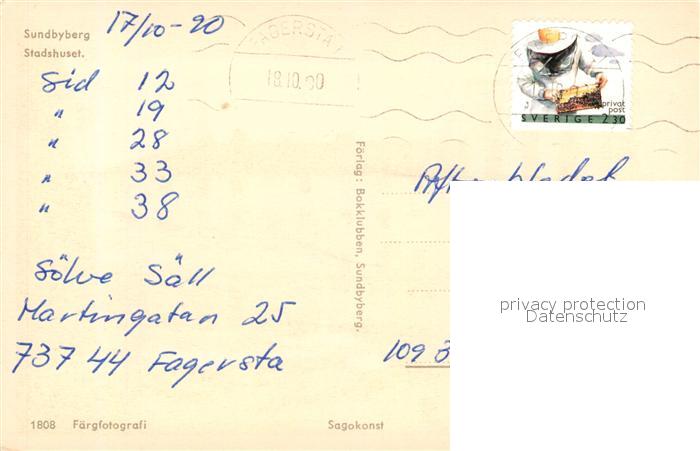 Sundbyberg
Stadshuset.
17/10-90
FAGERSTA 1
18.10.90
privat
post
SVERIGE 2.30
Sid 12
" 19
" 28
" 33
" 38
Förlag: Bokklubben, Sundbyberg.
Sölve Säll
Martingatan 25
737 44 Fagersta
109 3
privacy protection
Datenschutz
1808 Färgfotografi
Sagokonst